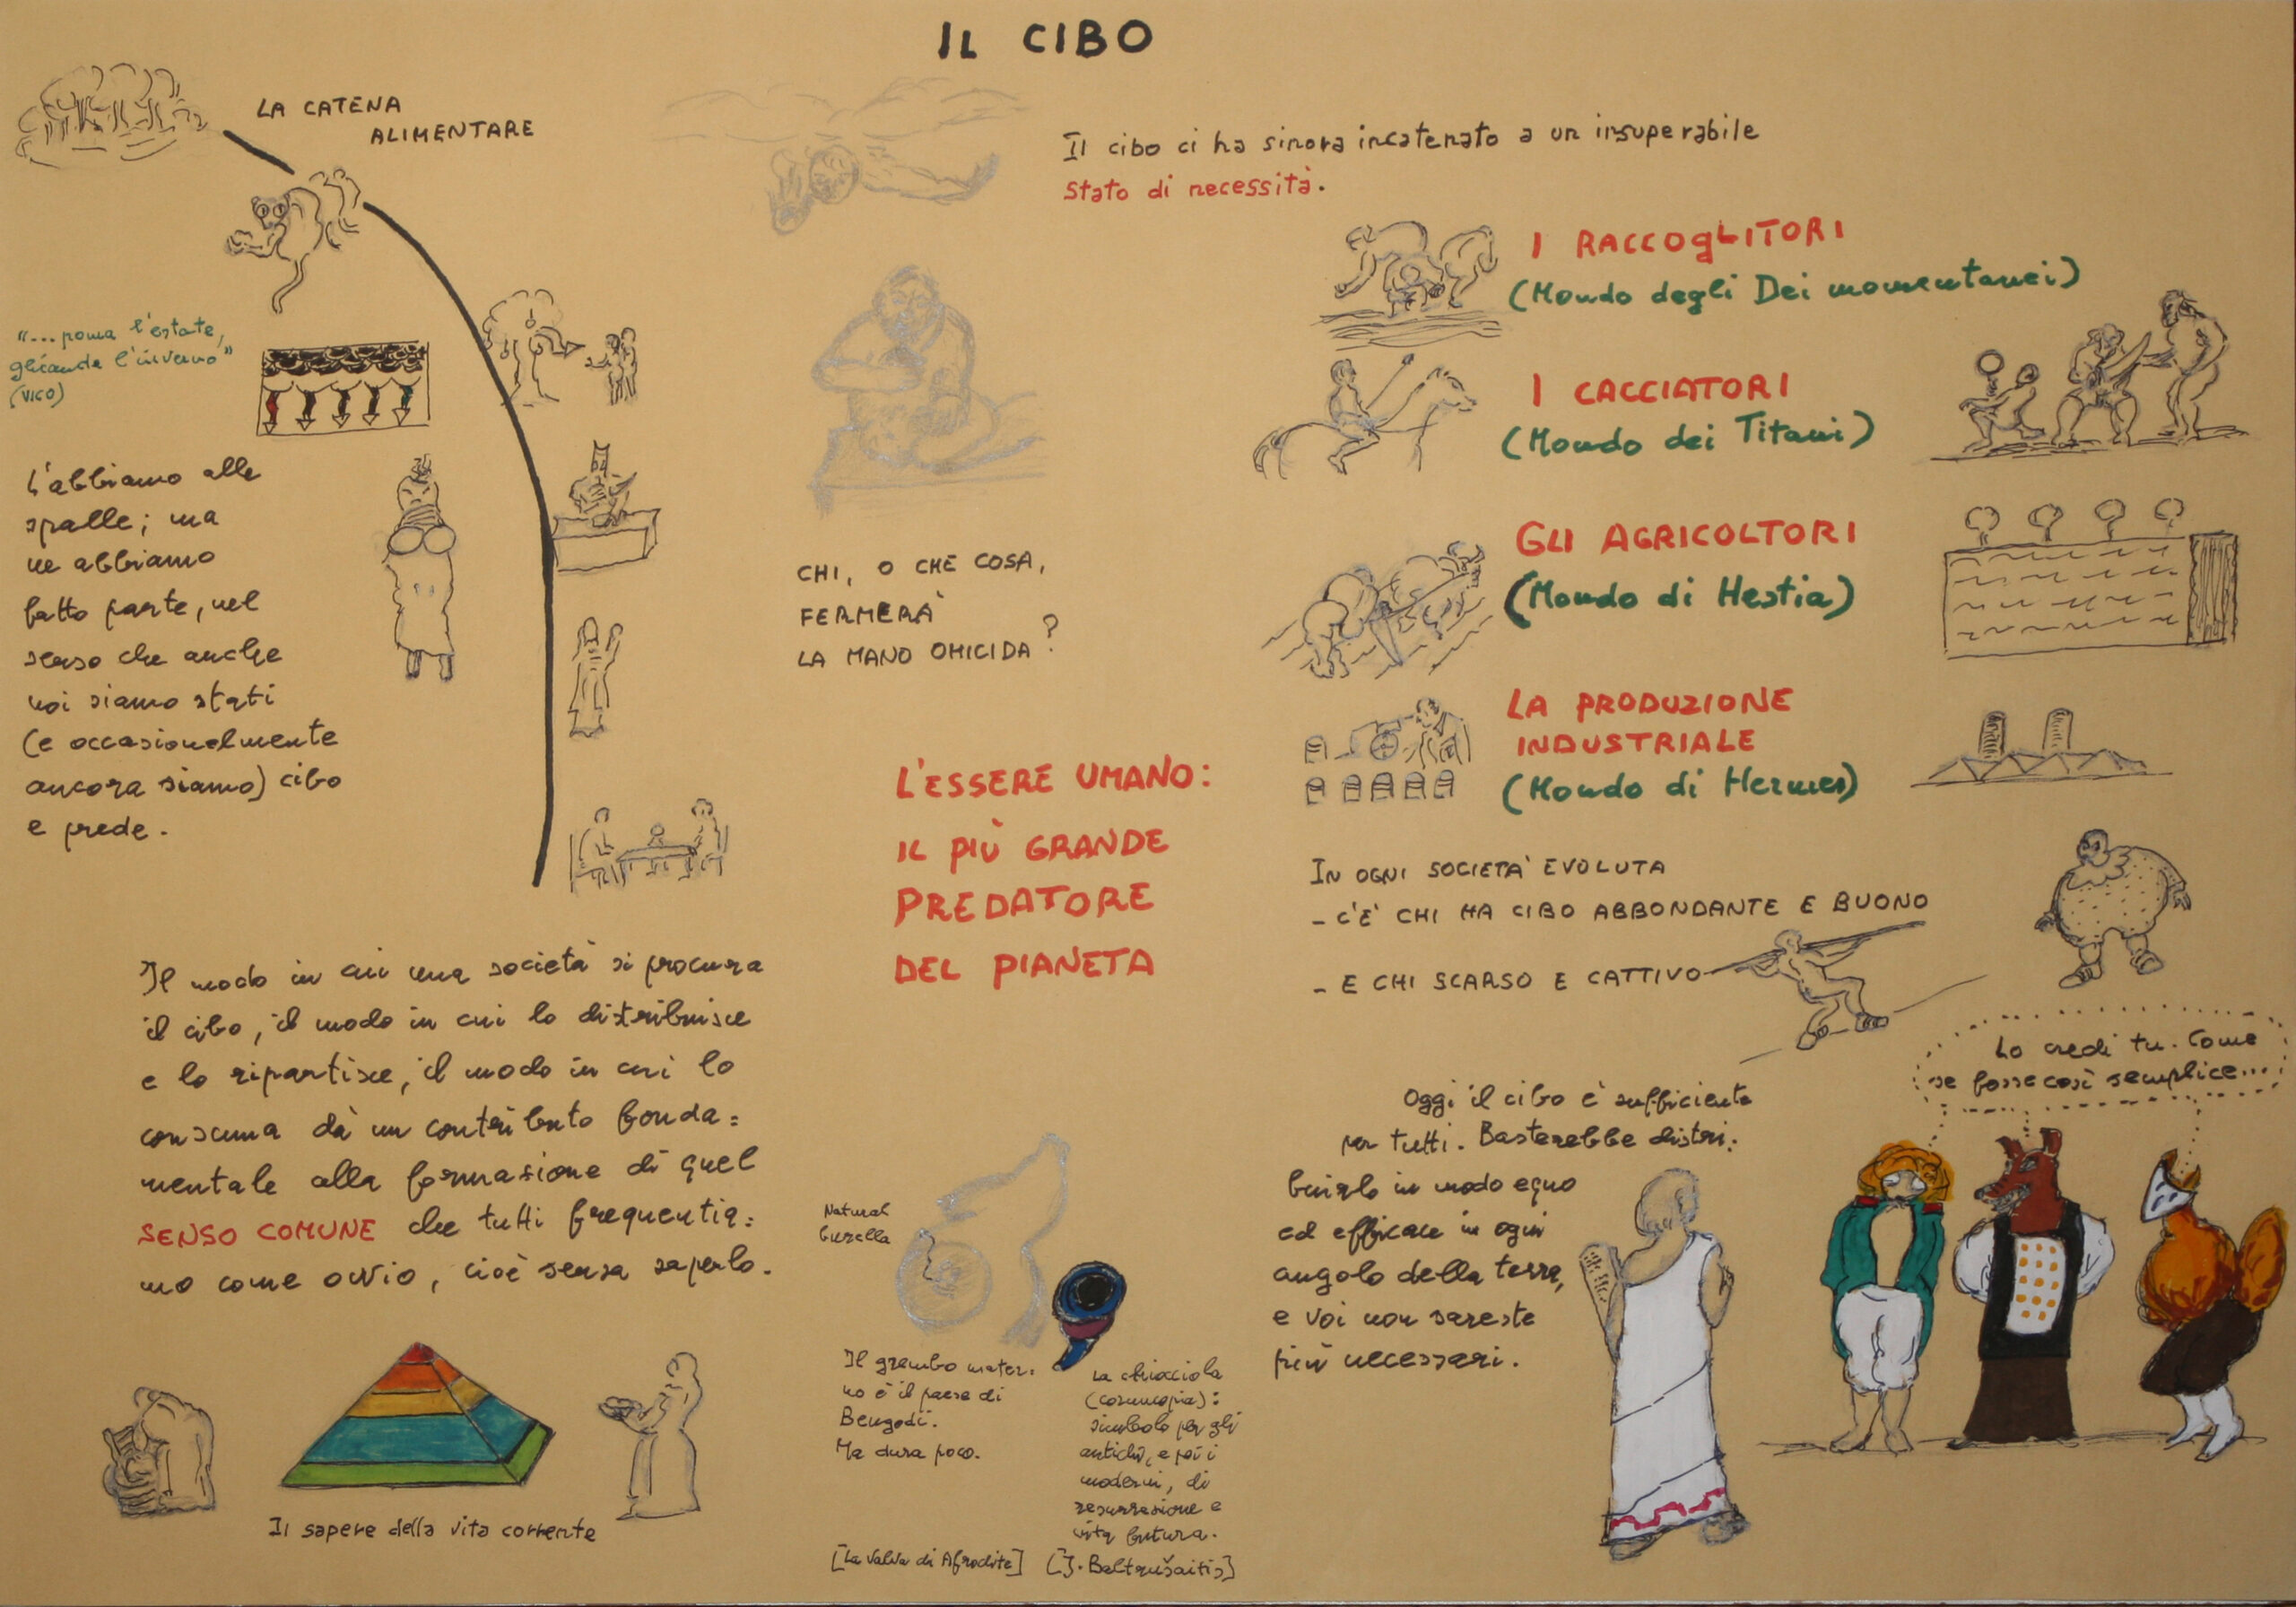 IL CIBO
LA CATENA
ALIMENTARE
"... poma l'estate,
gliande l'inverno"
(VICO)
L'abbiamo alle
spalle; ma
ne abbiamo
fatto parte, nel
senso che anche
noi siamo stati
(e occasionalmente
ancora siamo) cibo
e prede.
Il modo in cui una società si procura
il cibo, il modo in cui lo distribuisce
e lo ripartisce, il modo in cui lo
consuma dà un contributo fonda=
mentale alla formazione di quel
SENSO COMUNE che tutti frequentia=
mo come ovvio, cioè senza saperlo.
Il sapere della vita corrente
CHI, O CHE COSA,
FERMERÀ
LA MANO OMICIDA?
L'ESSERE UMANO:
IL PIÙ GRANDE
PREDATORE
DEL PIANETA
Natural
burella
Il grembo mater.
no è il paese di
Bengodi.
Ma dura poco.
[La valva di Afrodite]
La chiocciola
(cornucopia):
simbolo per gli
antichi, e poi i
moderni, di
resurrezione e
vita futura.
[J. Baltrušaitis]
Il cibo ci ha sinora incatenato a un insuperabile
stato di necessità.
I RACCOGLITORI
(Mondo degli Dei momentanei)
I CACCIATORI
(Mondo dei Titani)
GLI AGRICOLTORI
(Mondo di Hestia)
LA PRODUZIONE
INDUSTRIALE
(Mondo di Hermes)
IN OGNI SOCIETÀ EVOLUTA
- C'È CHI HA CIBO ABBONDANTE E BUONO
- E CHI SCARSO E CATTIVO
Oggi il cibo è sufficiente
per tutti. Basterebbe distri.
buirlo in modo equo
ed efficace in ogni
angolo della terra,
e voi non sareste
più necessari.
Lo credi tu. Come
se fosse così semplice...